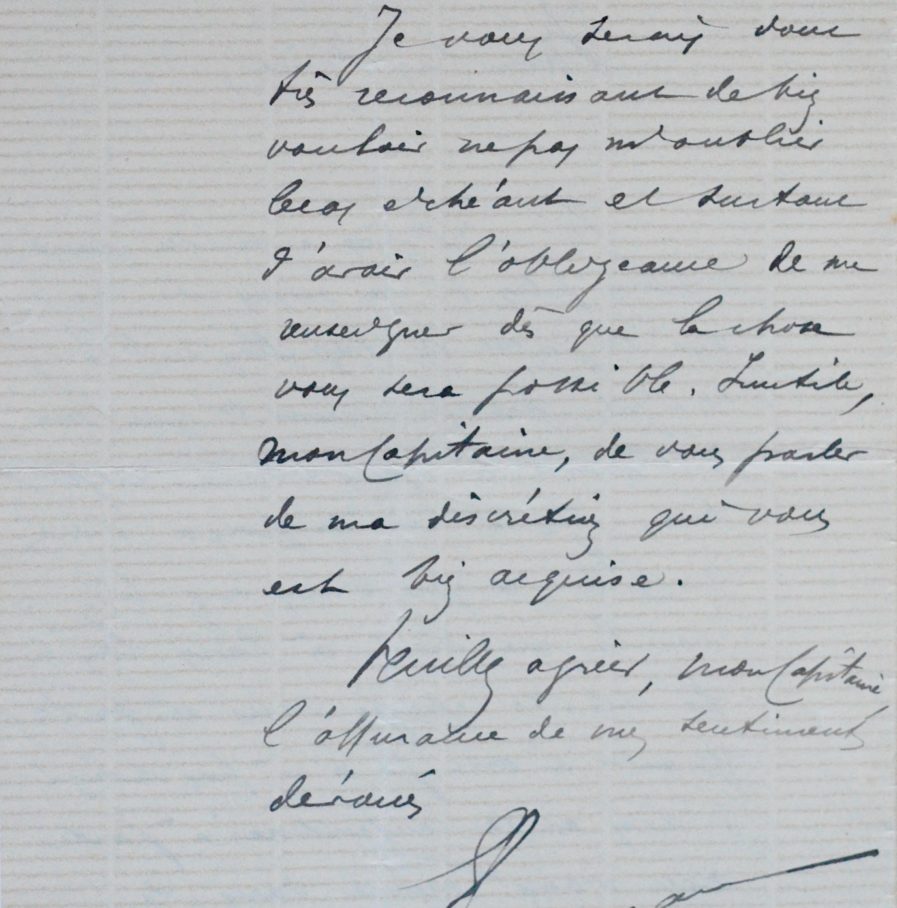 Je vous serais donc
très reconnaissant de bien
vouloir ne pas m'oublier
le cas échéant et surtout
d'avoir l'obligeance de me
renseigner dès que la chose
vous sera possible. Inutile,
mon Capitaine, de vous parler
de ma discrétion qui vous
est bien acquise.
Veuillez agréer, mon Capitaine,
l'assurance de mes sentiments
dévoués